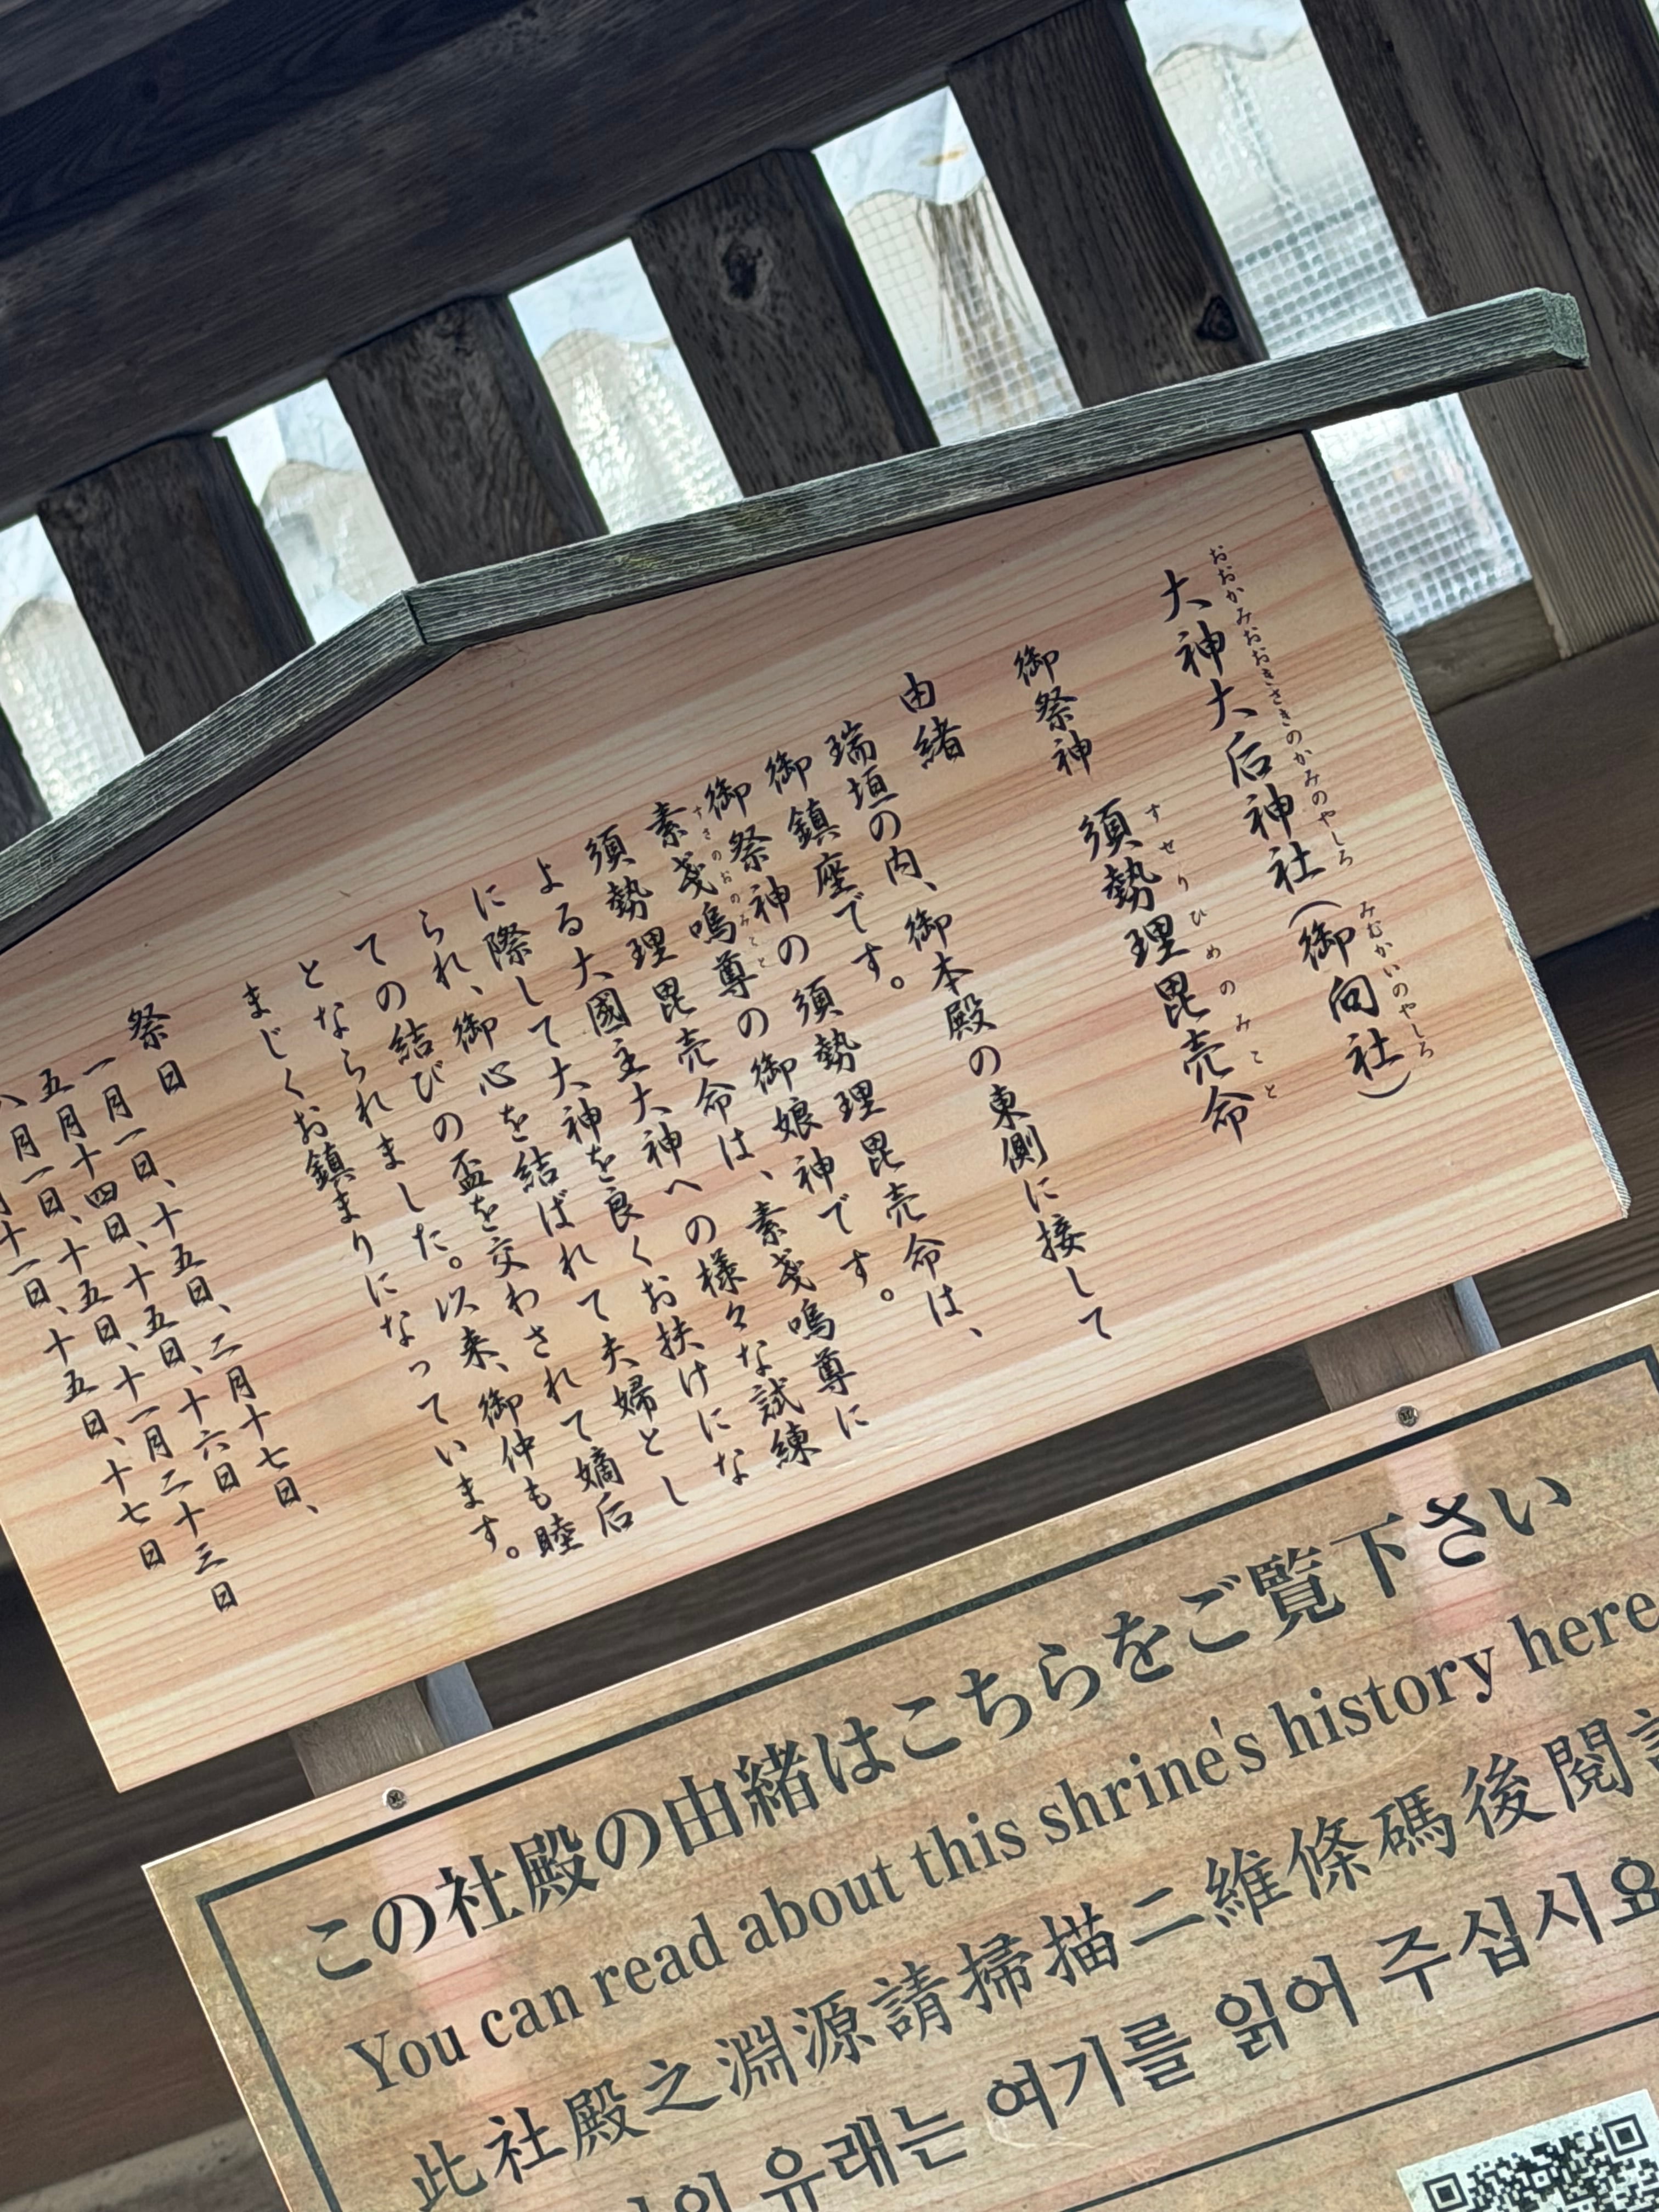 大神大后神社(御向社)
おおかみおおきさきのかみのやしろ
みむかいのやしろ
御祭神 須勢理毘売命
すせりひめのみこと
由緒
瑞垣の内、御本殿の東側に接して
御鎮座です。
御祭神の須勢理毘売命は、
素戔嗚尊の御娘神です。
すさのおのみこと
須勢理毘売命は、素戔嗚尊に
よる大國主大神への様々な試練
に際して大神を良くお扶けにな
られ、御心を結ばれて夫婦とし
ての結びの盃を交わされて嫡后
となられました。以来、御仲も睦
まじくお鎮まりになっています。
祭日
一月一日、十五日、二月十七日、
五月十四日、十五日、十六日
月一日、十五日、十一月二十三日
月十一日、十五日、十七日
この社殿の由緒はこちらをご覧下さい
You can read about this shrine's history here
此社殿之淵源請掃描二維條碼後閱
유래는 여기를 읽어 주십시요